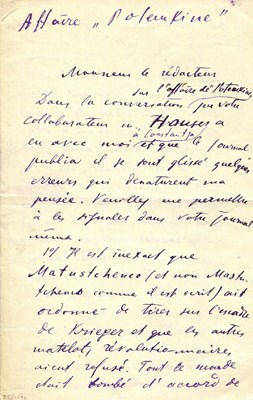 Affaire „Potemkine"
Monsieur le rédacteur
sur l'affaire de Potemkine
Dans la conversation que votre
collaborateur m. Hauser a
à Constantza
eu avec moi et que le journal
publia il se sont glissé quelques
erreurs qui dénaturent ma
pensée. Veuillez me permettre
à les signaler dans votre journal
même.
1o/ Il est inexact que
Matuschenco (et non
comme il est écrit) ait
ordonné de tirer sur l'escadre
de Krieger et que les autres
matelots révolutionnaires
aient refusé. Tout le monde
était tombé d'accord de